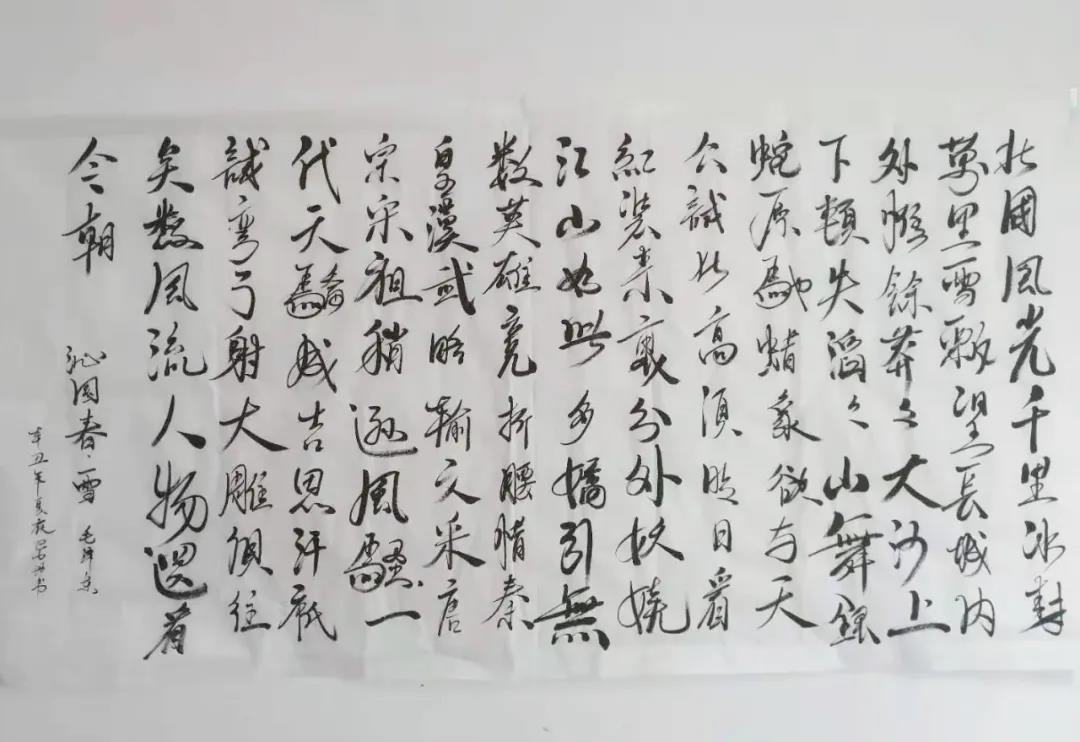 北國風光千里冰封
萬里雪飘望長城内
外惟餘莽々大河上
下頓失滔々山舞銀
蛇原馳蜡象欲与天
公誠比高須晴日看
紅裝素裹分外妖娆
江山如此多嬌引無
数英雄竞折腰惜秦
皇漢武略輸文采唐
宗宋祖稍逊風騷一
代天驕成吉思汗祇
識弯弓射大雕俱往
矣数風流人物还看
今朝
沁園春·雪 毛泽东
辛丑年夏夜 书